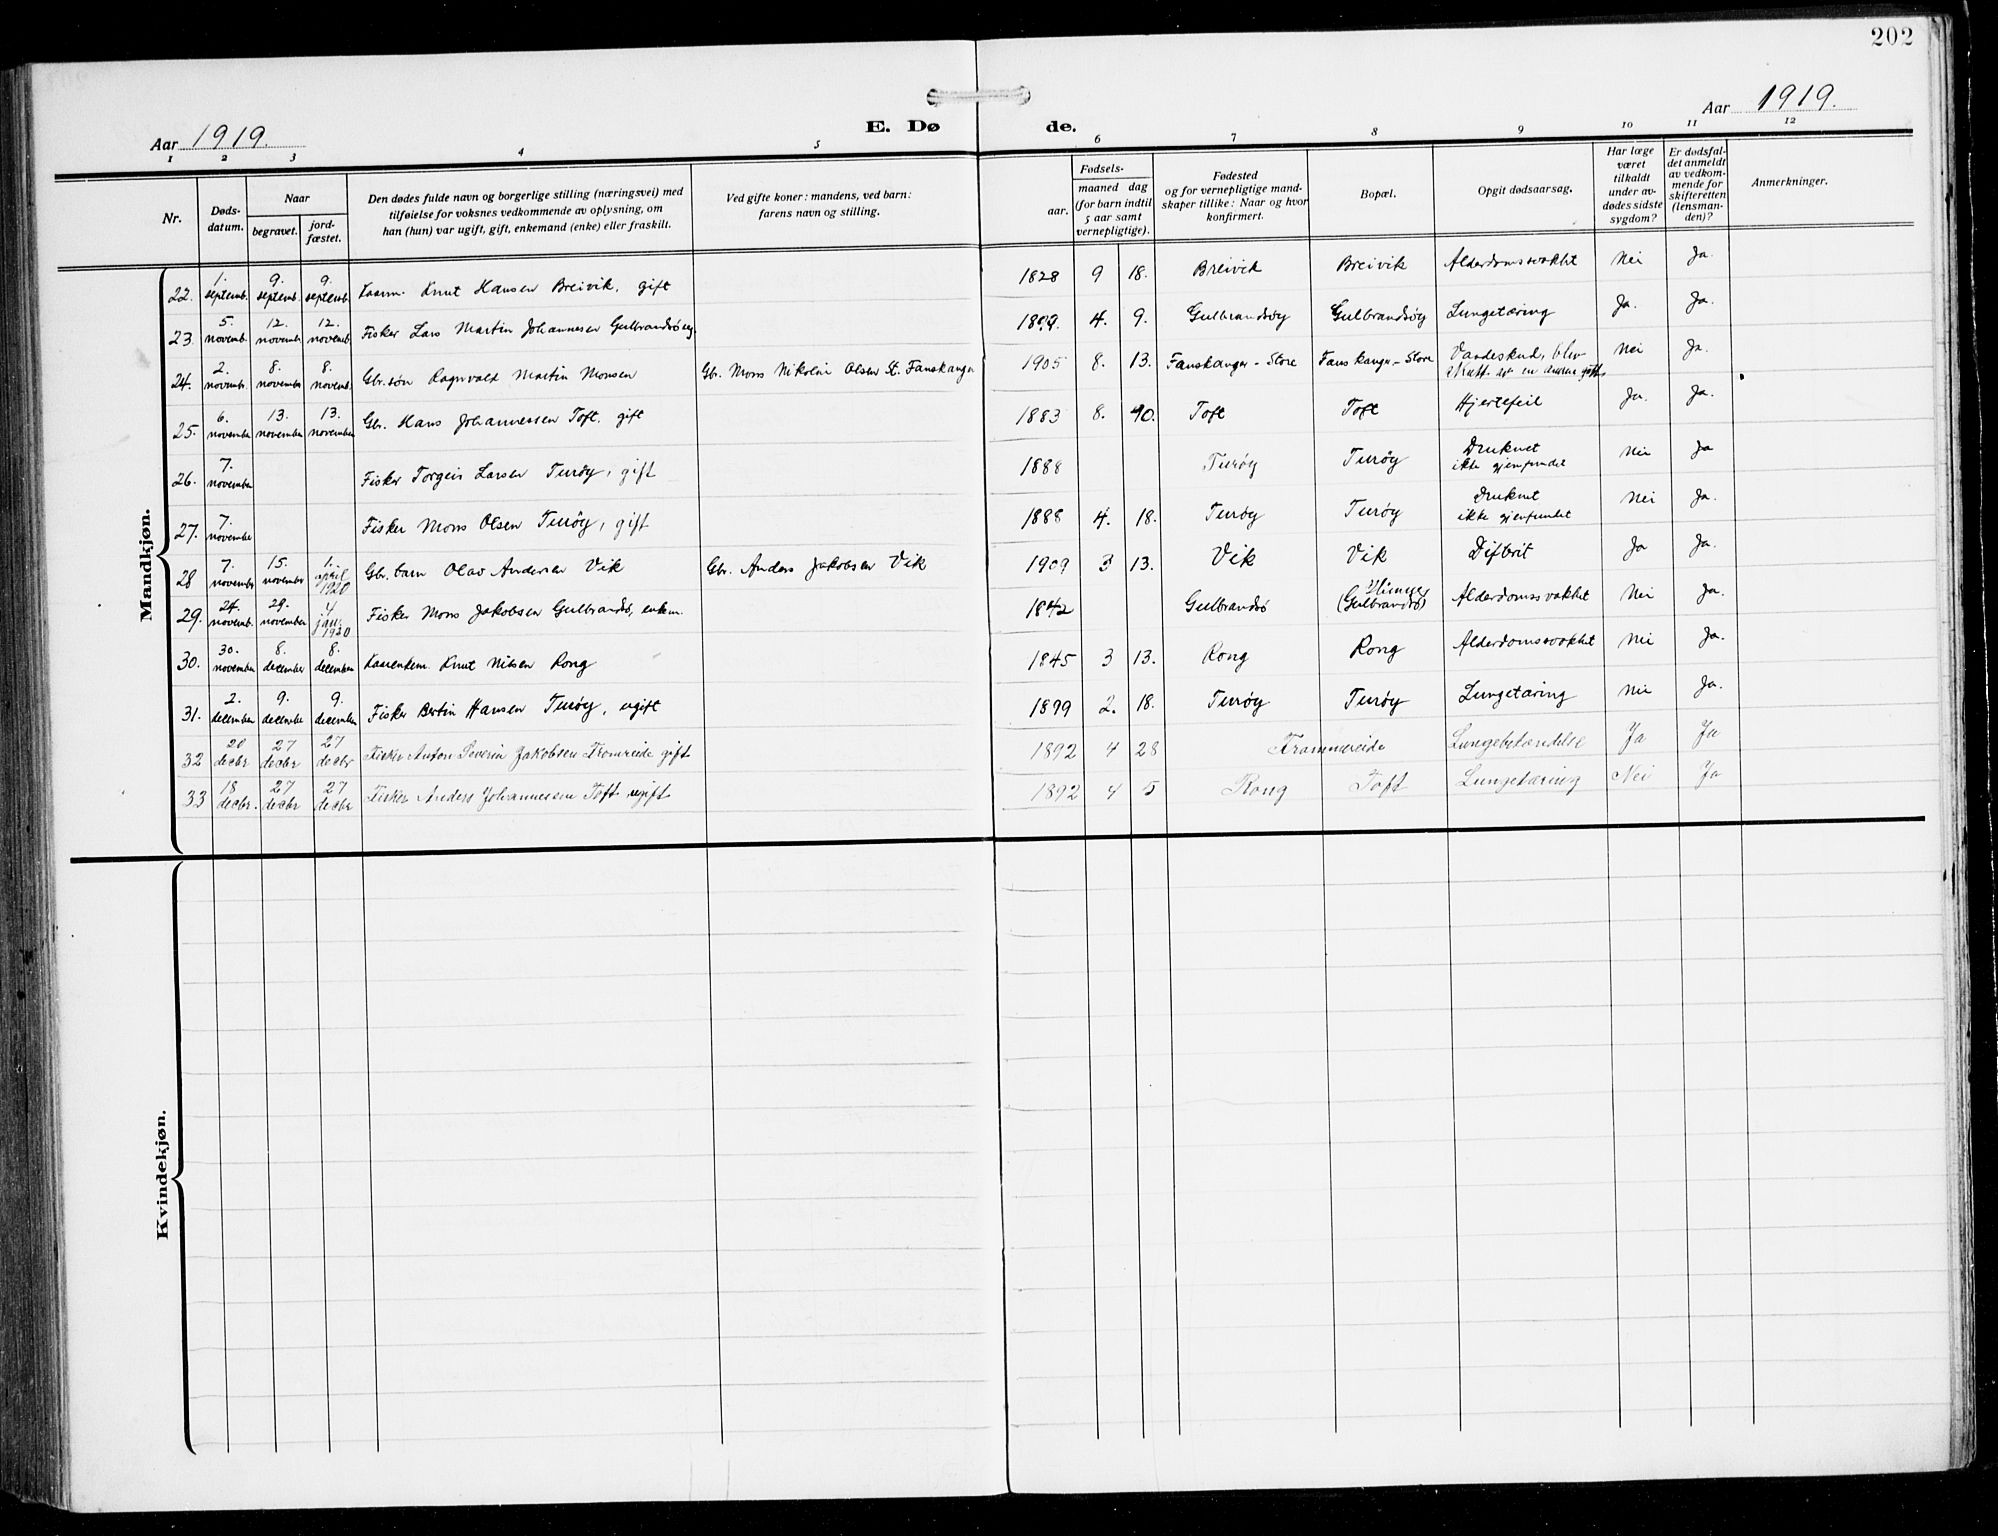 202
Aar 1919. E. Dø de. Aar 1919.
1 2 3 4 5 6 7 8 9 10 11 12
Nr.
Døds-
datum.
Naar
begravet.
jord-
fæstet.
Den dødes fulde navn og borgerlige stilling (næringsvei) med
tilføielse for voksnes vedkommende av oplysning, om
han (hun) var ugift, gift, enkemand (enke) eller fraskilt.
Ved gifte koner: mandens, ved barn:
farens navn og stilling.
Fødsels-
aar.
maaned dag
(for barn indtil
5 aar samt
vernepligtige).
Fødested
og for vernepligtige mand-
skaper tillike: Naar og hvor
konfirmert.
Bopæl.
Opgit dødsaarsag.
Har læge
været
tilkaldt
under av-
dødes sidste
sygdom?
Er dødsfal-
det anmeldt
av vedkom-
mende for
skifteretten
(lensman-
den)?
Anmerkninger.
Mandkjøn.
22. 1. septemb. 9. septemb. 9. septemb. Kaarm. Knut Hansen Breivik, gift 1828 9 18. Breivik Breivik Alderdomssvakhet Nei Ja.
23. 5. novemb. 12. novemb. 12. novemb. Fisker Lars Martin Johannesen Gulbrandsöy 4. 9. Gulbrandsöy Gulbrandsöy Lungetæring Ja. Ja.
24. 2. novembr. 8. novembr. 8. novembr. Gbr. søn Ragnvald Martin Monsen Gbr. Mons Nikolai Olsen St. Fanskanger 1905 8. 13. Fanskanger - Store Fanskanger - Store Vaadeskud, blev skutt av en annen Nei Ja.
25. 6. november 13. november 13. november Gbr. Hans Johannessen Toft, gift 1883 8. Toft Toft Hjertefeil Ja. Ja.
26. 7. november Fisker Torgeis Larsen Turöy, gift 1888 Turöy Turöy Druknet ikke gjenfundet Nei Ja
27. 7. november Fisker Mons Olsen Turöy, gift 1888 4. 18. Turöy Turöy Druknet ikke gjenfundet Nei Ja.
28 7. november 15. november 1. april 1920 Gbr. barn Olav Andersen Vik Gbr. Anders Jakobsen Vik 1909 3 13. Vik Vik Difterit Ja Ja.
29. 24. novemb. 29. november 4 jan. 1920 Fisker Mons Jakobsen Gulbrandsö, enkem. 1842 Gulbrandsö (Gulbrandsö) Alderdomssvakhet Nei Ja.
30. 30. november 8. december 8. december Kaarenkem. Knut Nilsen Rong 1845 3 13. Rong Rong Alderdomssvakhet Nei Ja.
31. 2. december 9. decembr 9. december Fisker Bertin Hansen Turöy, ugift 1899 2. 18. Turöy Turöy Lungetæring Nei Ja.
32 20 decbr 27 decbr 27 decbr Fisker Anton Severin Jakobsen Fromreide gift 1892 4 28 Frammereide Lungebetændelse Ja Ja
33 18 decbr. 27 decbr 27 decbr Fisker Anders Johannessen Toft ugift 1892 4 5 Rong Toft Lungetæring Nei Ja
Kvindekjøn.